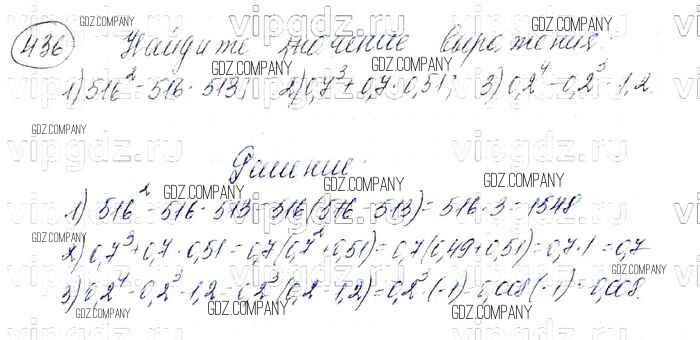 436 Найдите значение выражения:
1) 516² - 516 · 513; 2) 0,7³ + 0,7 · 0,51; 3) 0,2⁴ - 0,2³ · 1,2
Решение:
1) 516² - 516 · 513 = 516 (516 - 513) = 516 · 3 = 1548
2) 0,7³ + 0,7 · 0,51 = 0,7 (0,7² + 0,51) = 0,7 (0,49 + 0,51) = 0,7 · 1 = 0,7
3) 0,2⁴ - 0,2³ · 1,2 = 0,2³ (0,2 - 1,2) = 0,2³ · (-1) = 0,008 (-1) = 0,008.
vipgdz.ru
GDZ.COMPANY